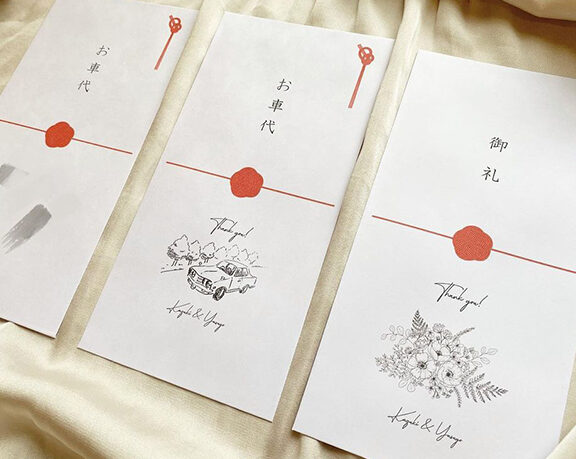 お車代
お車代
Thank you!
Kazuki & Yuryo
御礼
Thank you!
Kazuki & Yuryo